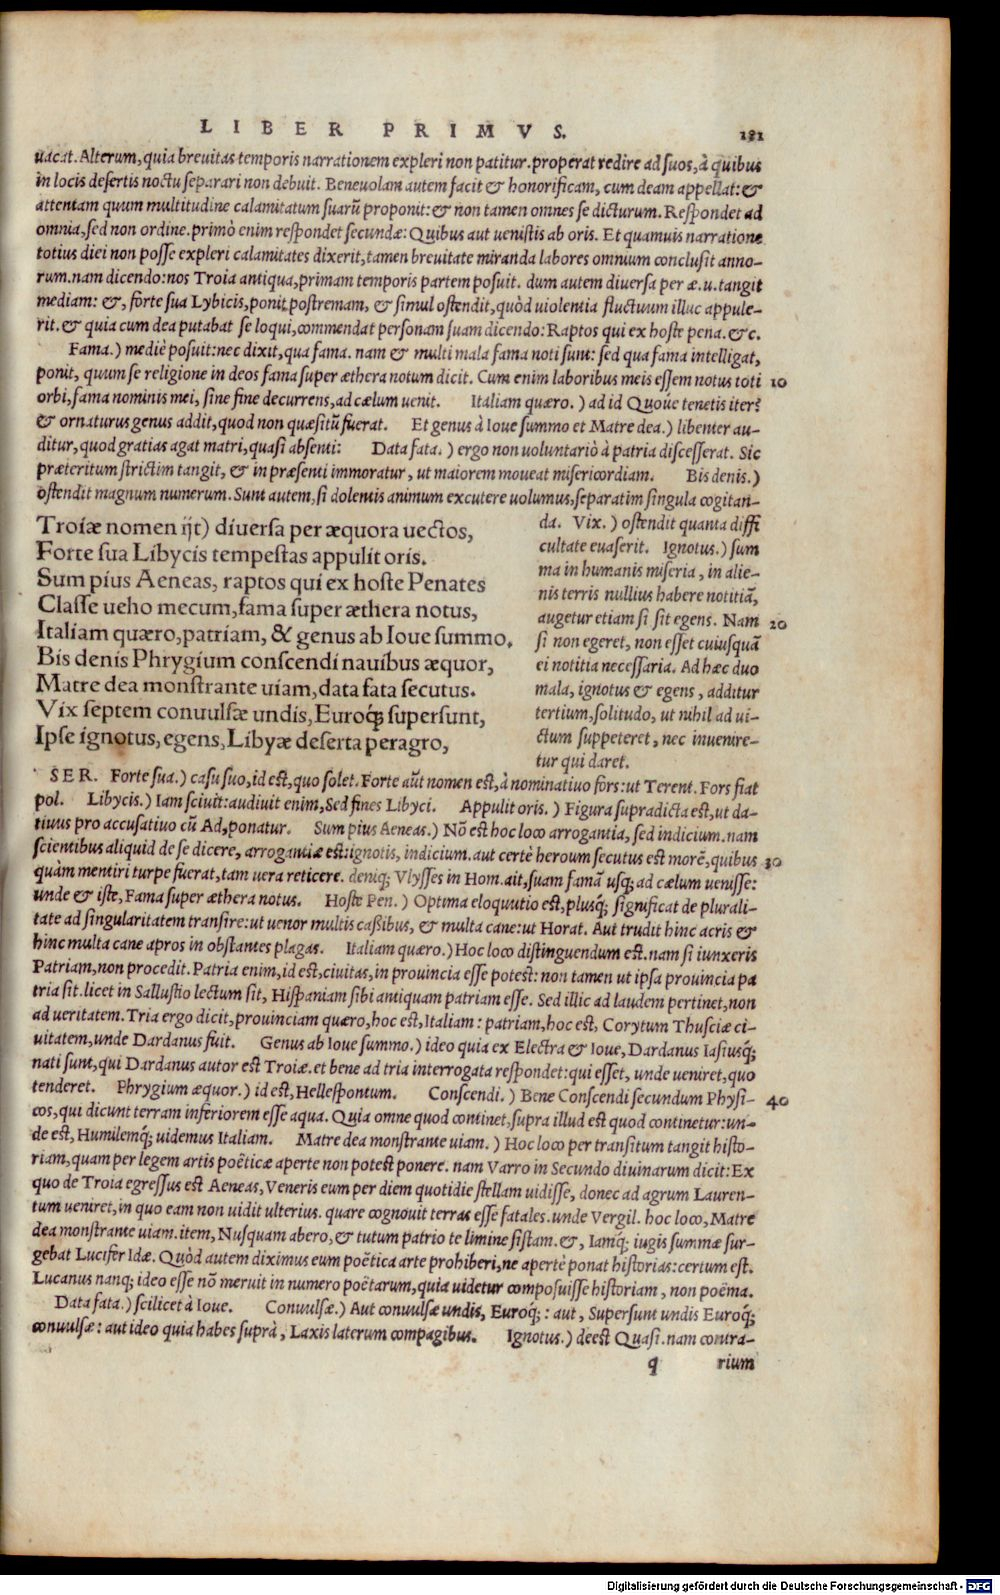 LIBER PRIMVS. 181
uacat. Alterum, quia breuitas temporis narrationem expleri non patitur. properat redire ad suos, à quibus
in locis desertis noctu separari non debuit. Beneuolam autem facit & honorificam, cum deam appellat: &
attentam quum multitudine calamitatum suarũ proponit: & non tamen omnes se dicturum. Respondet ad
omnia, sed non ordine. primò enim respondet secundæ: Quibus aut uenistis ab oris. Et quamuis narratione
totius diei non posse expleri calamitates dixerit, tamen breuitate miranda labores omnium conclusit anno-
rum. nam dicendo: nos Troia antiqua, primam temporis partem posuit. dum autem diuersa per æ. u. tangit
mediam: &, forte sua Lybicis, ponit postremam, & simul ostendit, quòd uiolentia fluctuum illuc appule-
rit. & quia cum dea putabat se loqui, commendat personam suam dicendo: Raptos qui ex hoste pena. &c.
Fama.) mediè posuit: nec dixit, qua fama. nam & multi mala fama noti sunt: sed qua fama intelligat,
ponit, quum se religione in deos fama super æthera notum dicit. Cum enim laboribus meis essem notus toti 10
orbi, fama nominis mei, sine fine decurrens, ad cælum uenit. Italiam quæro.) ad id Quoúe tenetis iter?
& ornaturus genus addit, quod non quæsitũ fuerat. Et genus à Ioue summo et Matre dea.) libenter au-
ditur, quod gratias agat matri, quasi absenti: Data fata.) ergo non uoluntariò à patria discesserat. Sic
præteritum strictim tangit, & in præsenti immoratur, ut maiorem moueat misericordiam. Bis denis.)
ostendit magnum numerum. Sunt autem, si dolentis animum excutere uolumus, separatim singula cogitan-
Troiæ nomen ijt) diuersa per æquora uectos,
Forte sua Libycis tempestas appulit oris.
Sum pius Aeneas, raptos qui ex hoste Penates
Classe ueho mecum, fama super æthera notus,
Italiam quæro, patriam, & genus ab Ioue summo.
Bis denis Phrygium conscendi nauibus æquor,
Matre dea monstrante uiam, data fata secutus.
Vix septem conuulsæ undis, Euroq́; supersunt,
Ipse ignotus, egens, Libyæ deserta peragro,
da. Vix.) ostendit quanta diffi
cultate euaserit. Ignotus.) sum
ma in humanis miseria, in alie-
nis terris nullius habere notitiã,
augetur etiam si sit egens. Nam 20
si non egeret, non esset cuiusquã
ei notitia necessaria. Ad hæc duo
mala, ignotus & egens, additur
tertium, solitudo, ut nihil ad ui-
ctum suppeteret, nec inuenire-
tur qui daret.
SER. Forte sua.) casu suo, id est, quo solet. Forte aũt nomen est, à nominatiuo fors: ut Terent. Fors fiat
pol. Libycis.) Iam sciuit: audiuit enim, Sed fines Libyci. Appulit oris.) Figura supradicta est, ut da-
tiuus pro accusatiuo cũ Ad, ponatur. Sum pius Aeneas.) Nõ est hoc loco arrogantia, sed indicium. nam
scientibus aliquid de se dicere, arrogantiæ est: ignotis, indicium. aut certè heroum secutus est morẽ, quibus 30
quàm mentiri turpe fuerat, tam uera reticere. deniq; Vlysses in Hom. ait, suam famã usq; ad cælum uenisse:
unde & iste, Fama super æthera notus. Hoste Pen.) Optima eloquutio est, plusq; significat de plurali-
tate ad singularitatem transire: ut uenor multis cassibus, & multa cane: ut Horat. Aut trudit hinc acris &
hinc multa cane apros in obstantes plagas. Italiam quæro.) Hoc loco distinguendum est. nam si iunxeris
Patriam, non procedit. Patria enim, id est, ciuitas, in prouincia esse potest: non tamen ut ipsa prouincia pa
tria sit. licet in Sallustio lectum sit, Hispaniam sibi antiquam patriam esse. Sed illic ad laudem pertinet, non
ad ueritatem. Tria ergo dicit, prouinciam quæro, hoc est, Italiam: patriam, hoc est, Corytum Thusciæ ci-
uitatem, unde Dardanus fuit. Genus ab Ioue summo.) ideo quia ex Electra & Ioue, Dardanus Iasiusq́;
nati sunt, qui Dardanus autor est Troiæ. et bene ad tria interrogata respondet: qui esset, unde ueniret, quo
tenderet. Phrygium æquor.) id est, Hellespontum. Conscendi.) Bene Conscendi secundum Physi- 40
cos, qui dicunt terram inferiorem esse aqua. Quia omne quod continet, supra illud est quod continetur: un-
de est, Humilemq́; uidemus Italiam. Matre dea monstrante uiam.) Hoc loco per transitum tangit histo-
riam, quam per legem artis poëticæ aperte non potest ponere. nam Varro in Secundo diuinarum dicit: Ex
quo de Troia egressus est Aeneas, Veneris eum per diem quotidie stellam uidisse, donec ad agrum Lauren-
tum ueniret, in quo eam non uidit ulterius. quare cognouit terras esse fatales. unde Vergil. hoc loco, Matre
dea monstrante uiam. item, Nusquam abero, & tutum patrio te limine sistam. &, Iamq́; iugis summæ sur-
gebat Lucifer Idæ. Quòd autem diximus eum poëtica arte prohiberi, ne apertè ponat historias: certum est.
Lucanus nanq; ideo esse nõ meruit in numero poëtarum, quia uidetur composuisse historiam, non poëma.
Data fata.) scilicet à Ioue. Conuulsæ.) Aut conuulsæ undis, Euroq́;: aut, Supersunt undis Euroq́;
conuulsæ: aut ideo quia habes suprà, Laxis laterum compagibus. Ignotus.) deest Quasi. nam contra-
q rium
Digitalisierung gefördert durch die Deutsche Forschungsgemeinschaft - DFG